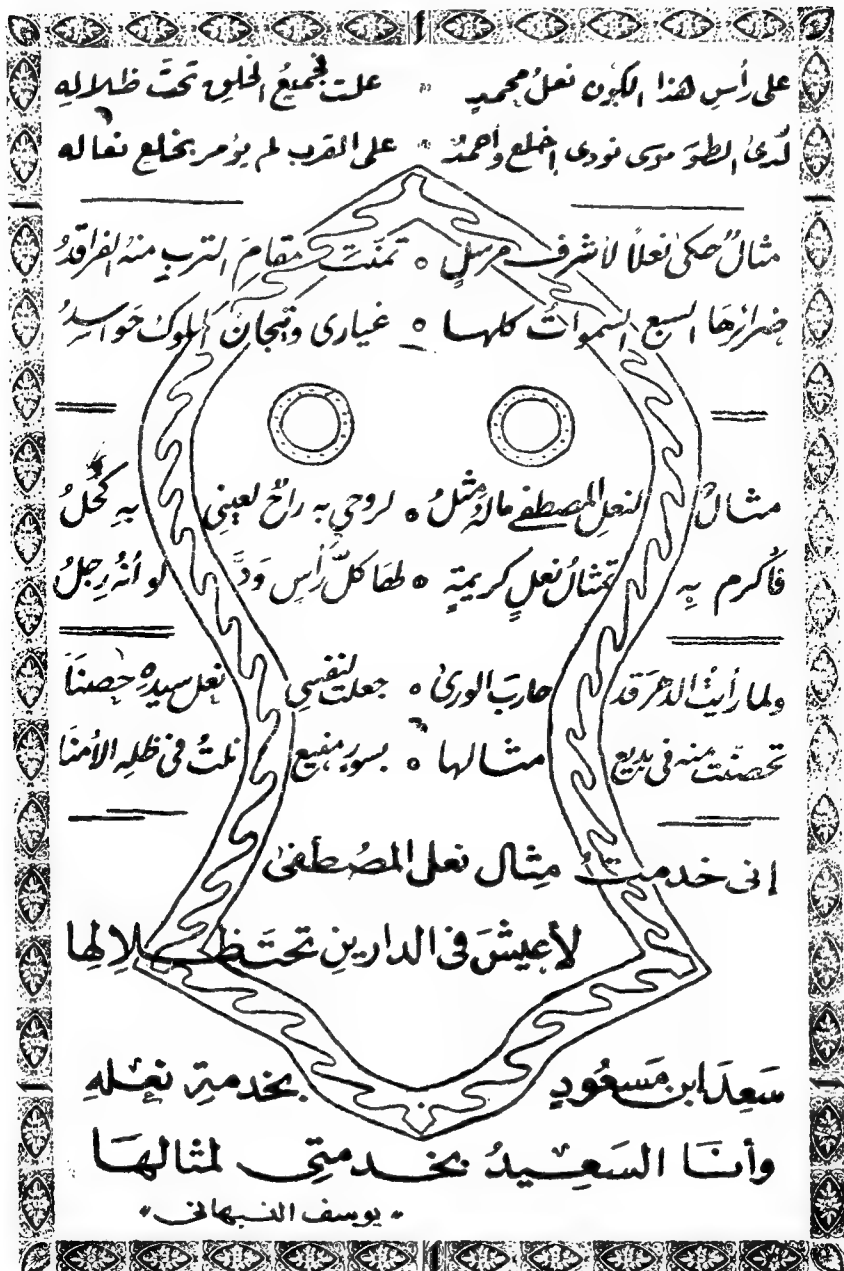 على رأس هذا الكون نعل محمد علت فجميع الخلق تحت ظلاله
لدى الطور موسى نودى اخلع وأحمد على القرب لم يؤمر بخلع نعاله
مثال حكى نعلا لأشرف مرسل ○ تمنت مقام الترب منه الفراقد
ضرائرها السبع السموات كلها ○ غيارى وتيجان الملوك حواسد
مثال لنعل المصطفى ماله مثل ○ لروحي به راح لعيني به كحل
فأكرم به تمثال نعل كريمة ○ لها كل رأس ود لو أنه رجل
ولما رأيت الدهر قد حارب الورى ○ جعلت لنفسي نعل سيده حصنا
تحصنت منه في بديع مثالها ○ بسور منيع نلت في ظله الأمنا
إنى خدمت مثال نعل المصطفى
لأعيش فى الدارين تحت ظلالها
سعد ابن مسعود بخدمة نعله
وأنا السعيد بخدمتى لمثالها
« يوسف النبهانى »